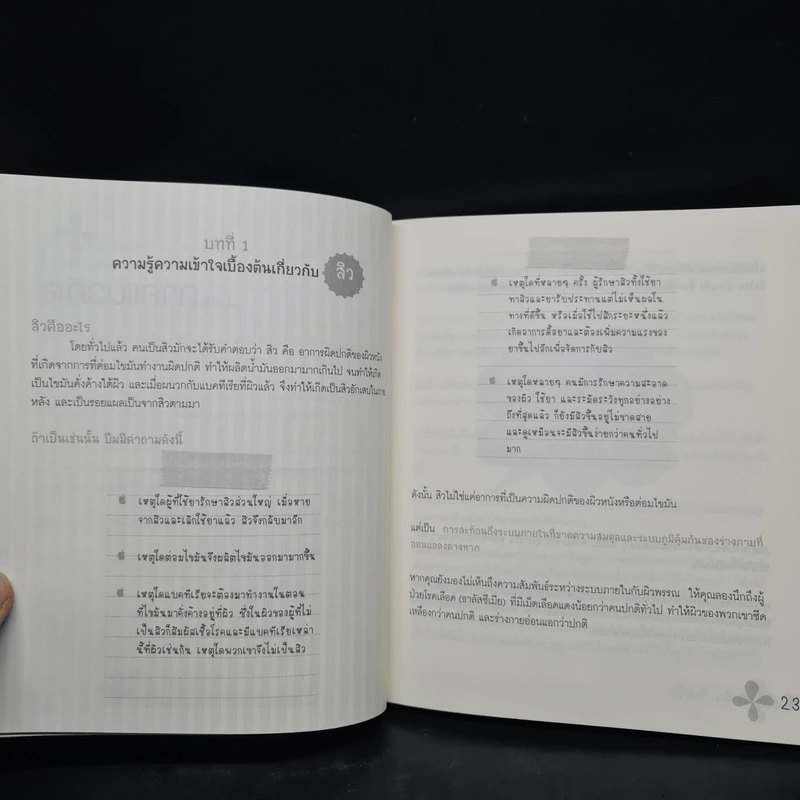 บทที่ 1
ความรู้ความเข้าใจเบื้องต้นเกี่ยวกับ สิว
สิวคืออะไร
โดยทั่วไปแล้ว คนเป็นสิวมักจะได้รับคำตอบว่า สิว คือ อาการผิดปกติของผิวหนัง
ที่เกิดจากการที่ต่อมไขมันทำงานผิดปกติ ทำให้ผลิตน้ำมันออกมามากเกินไป จนทำให้เกิด
เป็นไขมันคั่งค้างใต้ผิว และเมื่อผนวกกับแบคทีเรียที่ผิวแล้ว จึงทำให้เกิดเป็นสิวอักเสบในภาย
หลัง และเป็นรอยแผลเป็นจากสิวตามมา
ถ้าเป็นเช่นนั้น บีมมีคำถามดังนี้
เหตุใดผู้ที่ใช้ยารักษาสิวส่วนใหญ่ เมื่อหาย
จากสิวและเลิกใช้ยาแล้ว สิวจึงกลับมาอีก
เหตุใดต่อมไขมันจึงผลิตไขมันออกมามากขึ้น
เหตุใดแบคทีเรียจะต้องมาทำงานในตอน
ที่ไขมันมาคั่งค้างอยู่ที่ผิว ซึ่งในผิวของผู้ที่ไม่
เป็นสิวก็สัมผัสเชื้อโรคและมีแบคทีเรียเหล่า
นี้ที่ผิวเช่นกัน เหตุใดพวกเขาจึงไม่เป็นสิว
เหตุใดที่หลายๆ ครั้ง ผู้รักษาสิวทั้งใช้ยา
ทาสิวและยารับประทานแต่ไม่เห็นผลใน
ทางที่ดีขึ้น หรือเมื่อใช้ไปสักระยะหนึ่งแล้ว
เกิดอาการดื้อยาและต้องเพิ่มความแรงของ
ยาขึ้นไปอีกเพื่อจัดการกับสิว
เหตุใดหลายๆ คนมีการรักษาความสะอาด
ของผิว ใช้ยา และระมัดระวังทุกอย่างอย่าง
ถึงที่สุดแล้ว ก็ยังมีสิวขึ้นอยู่ไม่ขาดสาย
และดูเหมือนจะมีสิวขึ้นง่ายกว่าคนทั่วไป
มาก
ดังนั้น สิวไม่ใช่แค่อาการที่เป็นความผิดปกติของผิวหนังหรือต่อมไขมัน
แต่เป็น การสะท้อนถึงระบบภายในที่ขาดความสมดุลและระบบภูมิคุ้มกันของร่างกายที่
อ่อนแอลงอย่างมาก
หากคุณยังมองไม่เห็นถึงความสัมพันธ์ระหว่างระบบภายในกับผิวพรรณ ให้คุณลองนึกถึงผู้
ป่วยโรคเลือด (ธาลัสซีเมีย) ที่มีเม็ดเลือดแดงน้อยกว่าคนปกติทั่วไป ทำให้ผิวของพวกเขาซีด
เหลืองกว่าคนปกติ และร่างกายอ่อนแอกว่าปกติ
23